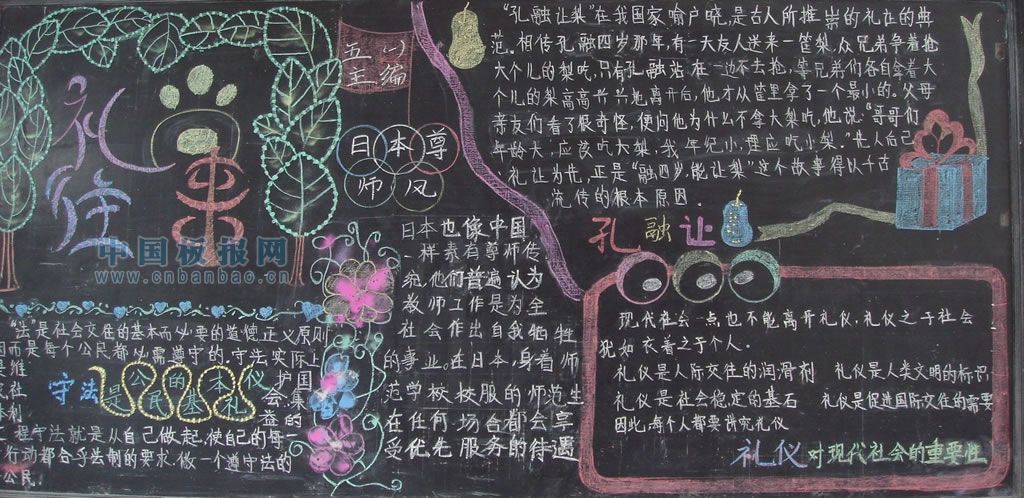 礼
往
来
五(一)
主编
中国板报网
www.cnbanbao.cn
日本尊
师风
"孔融让梨"在我国家喻户晓,是古人所推崇的礼让的典
范。相传孔融四岁那年,有一天友人送来一筐梨,众兄弟争着抢
大个儿的梨吃,只有孔融站在一边不去抢,等兄弟们各自拿着大
个儿的梨高高兴兴地离开后,他才从筐里拿了一个最小的。父母
亲友们看了很奇怪,便问他为什么不拿大梨吃,他说:"哥哥们
年龄大,应该吃大梨,我年纪小,理应吃小梨。"先人后己
,礼让为先,正是"融四岁,能让梨"这个故事得以千古
流传的根本原因.
孔融让
日本也像中国
一样素有尊师传
统,他们普遍认为
教师工作是为全
社会作出自我牺牲
的事业。在日本身着师
范学校校服的师范生
在任何场合都会享
受优先服务的待遇
"法"是社会交往的基本而必要的道德正义原则
因而是每个公民都必需遵守的,守法实际上
是维
护国
会、集
益的
守法是公民的基本礼仪
程守法就是从自己做起,使自己的每一
行动都合乎法制的要求,做一个遵守法的
公民.
现代社会一点也不能离开礼仪,礼仪之于社会
犹如衣着之于个人.
礼仪是人际交往的润滑剂 礼仪是人类文明的标识
礼仪是社会稳定的基石 礼仪是促进国际交往的需要
因此,每个人都要讲究礼仪
礼仪对现代社会的重要性